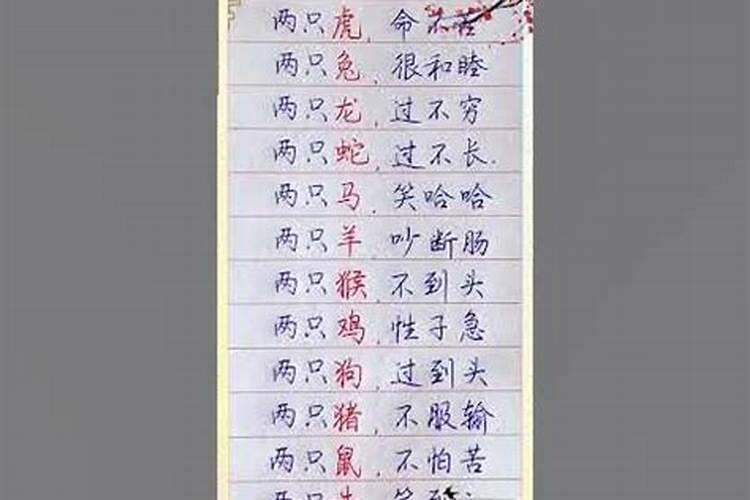 两只虎,命不苦
两只兔,很和睦
两只龙,过不穷
两只蛇,过不长.
两只马,笑哈哈
两只羊,吵断肠
两只猴,不到头
两只鸡,性子急
两只狗,过到头
两只猪,不服输
两只鼠,不怕苦
两只牛